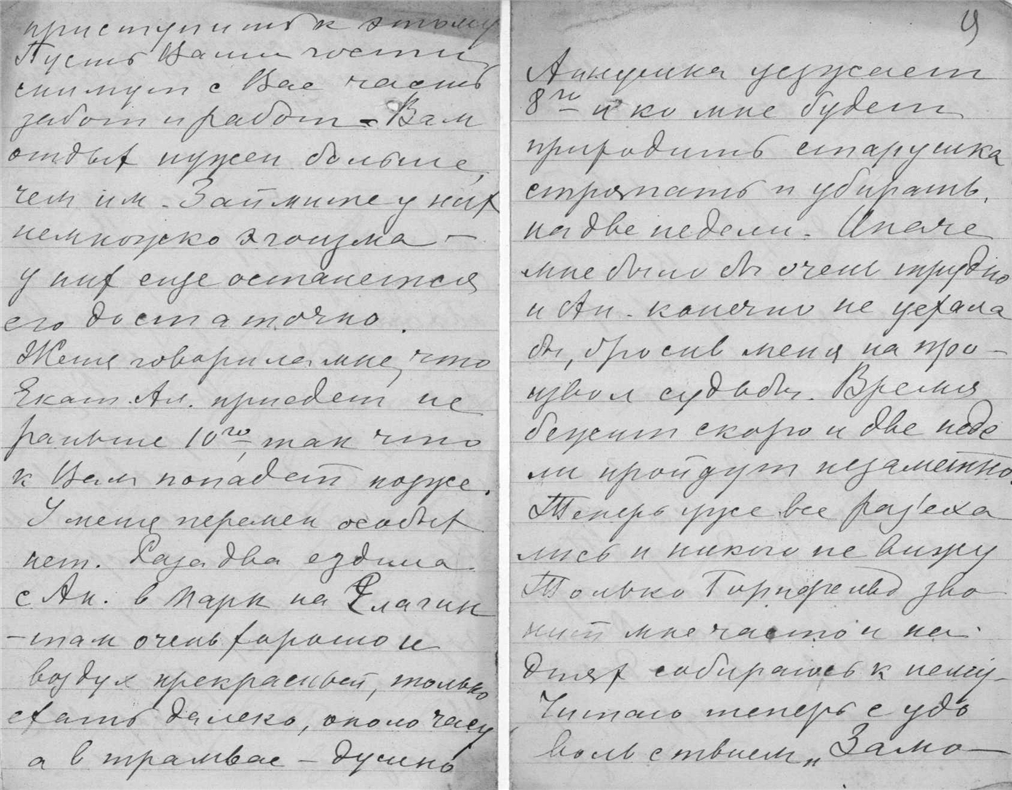 приступить к этому
Пусть Ваши гости
снимут с Вас часть
забот и работ. Вам
отдых нужен больше,
чем им. Займите у них
немножко эгоизма —
у них еще останется
его достаточно.
Женя говорила мне, что
Екат. Ан. приедет не
раньше 10го, так что
к Вам попадет позже.
У меня перемен особых
нет. Раза два ездила
с Ан. в парк на Елагин
— там очень хорошо и
воздух прекрасный, только
ехать далеко, около часу
а в трамвае — душно
9
Аннушка уезжает
8го и ко мне будет
приходить старушка
стряпать и убирать,
на две недели. Иначе
мне было бы очень трудно
и Ан. конечно не уехала
бы, бросив меня на про-
извол судьбы. Время
бежит скоро и две неде
ли пройдут незаметно.
Теперь уже все раз'еха
лись и никого не вижу
Только Горнфельд зво
нит мне часто и на
днях собираюсь к нему.
Читаю теперь с удо
вольствием „Замо—